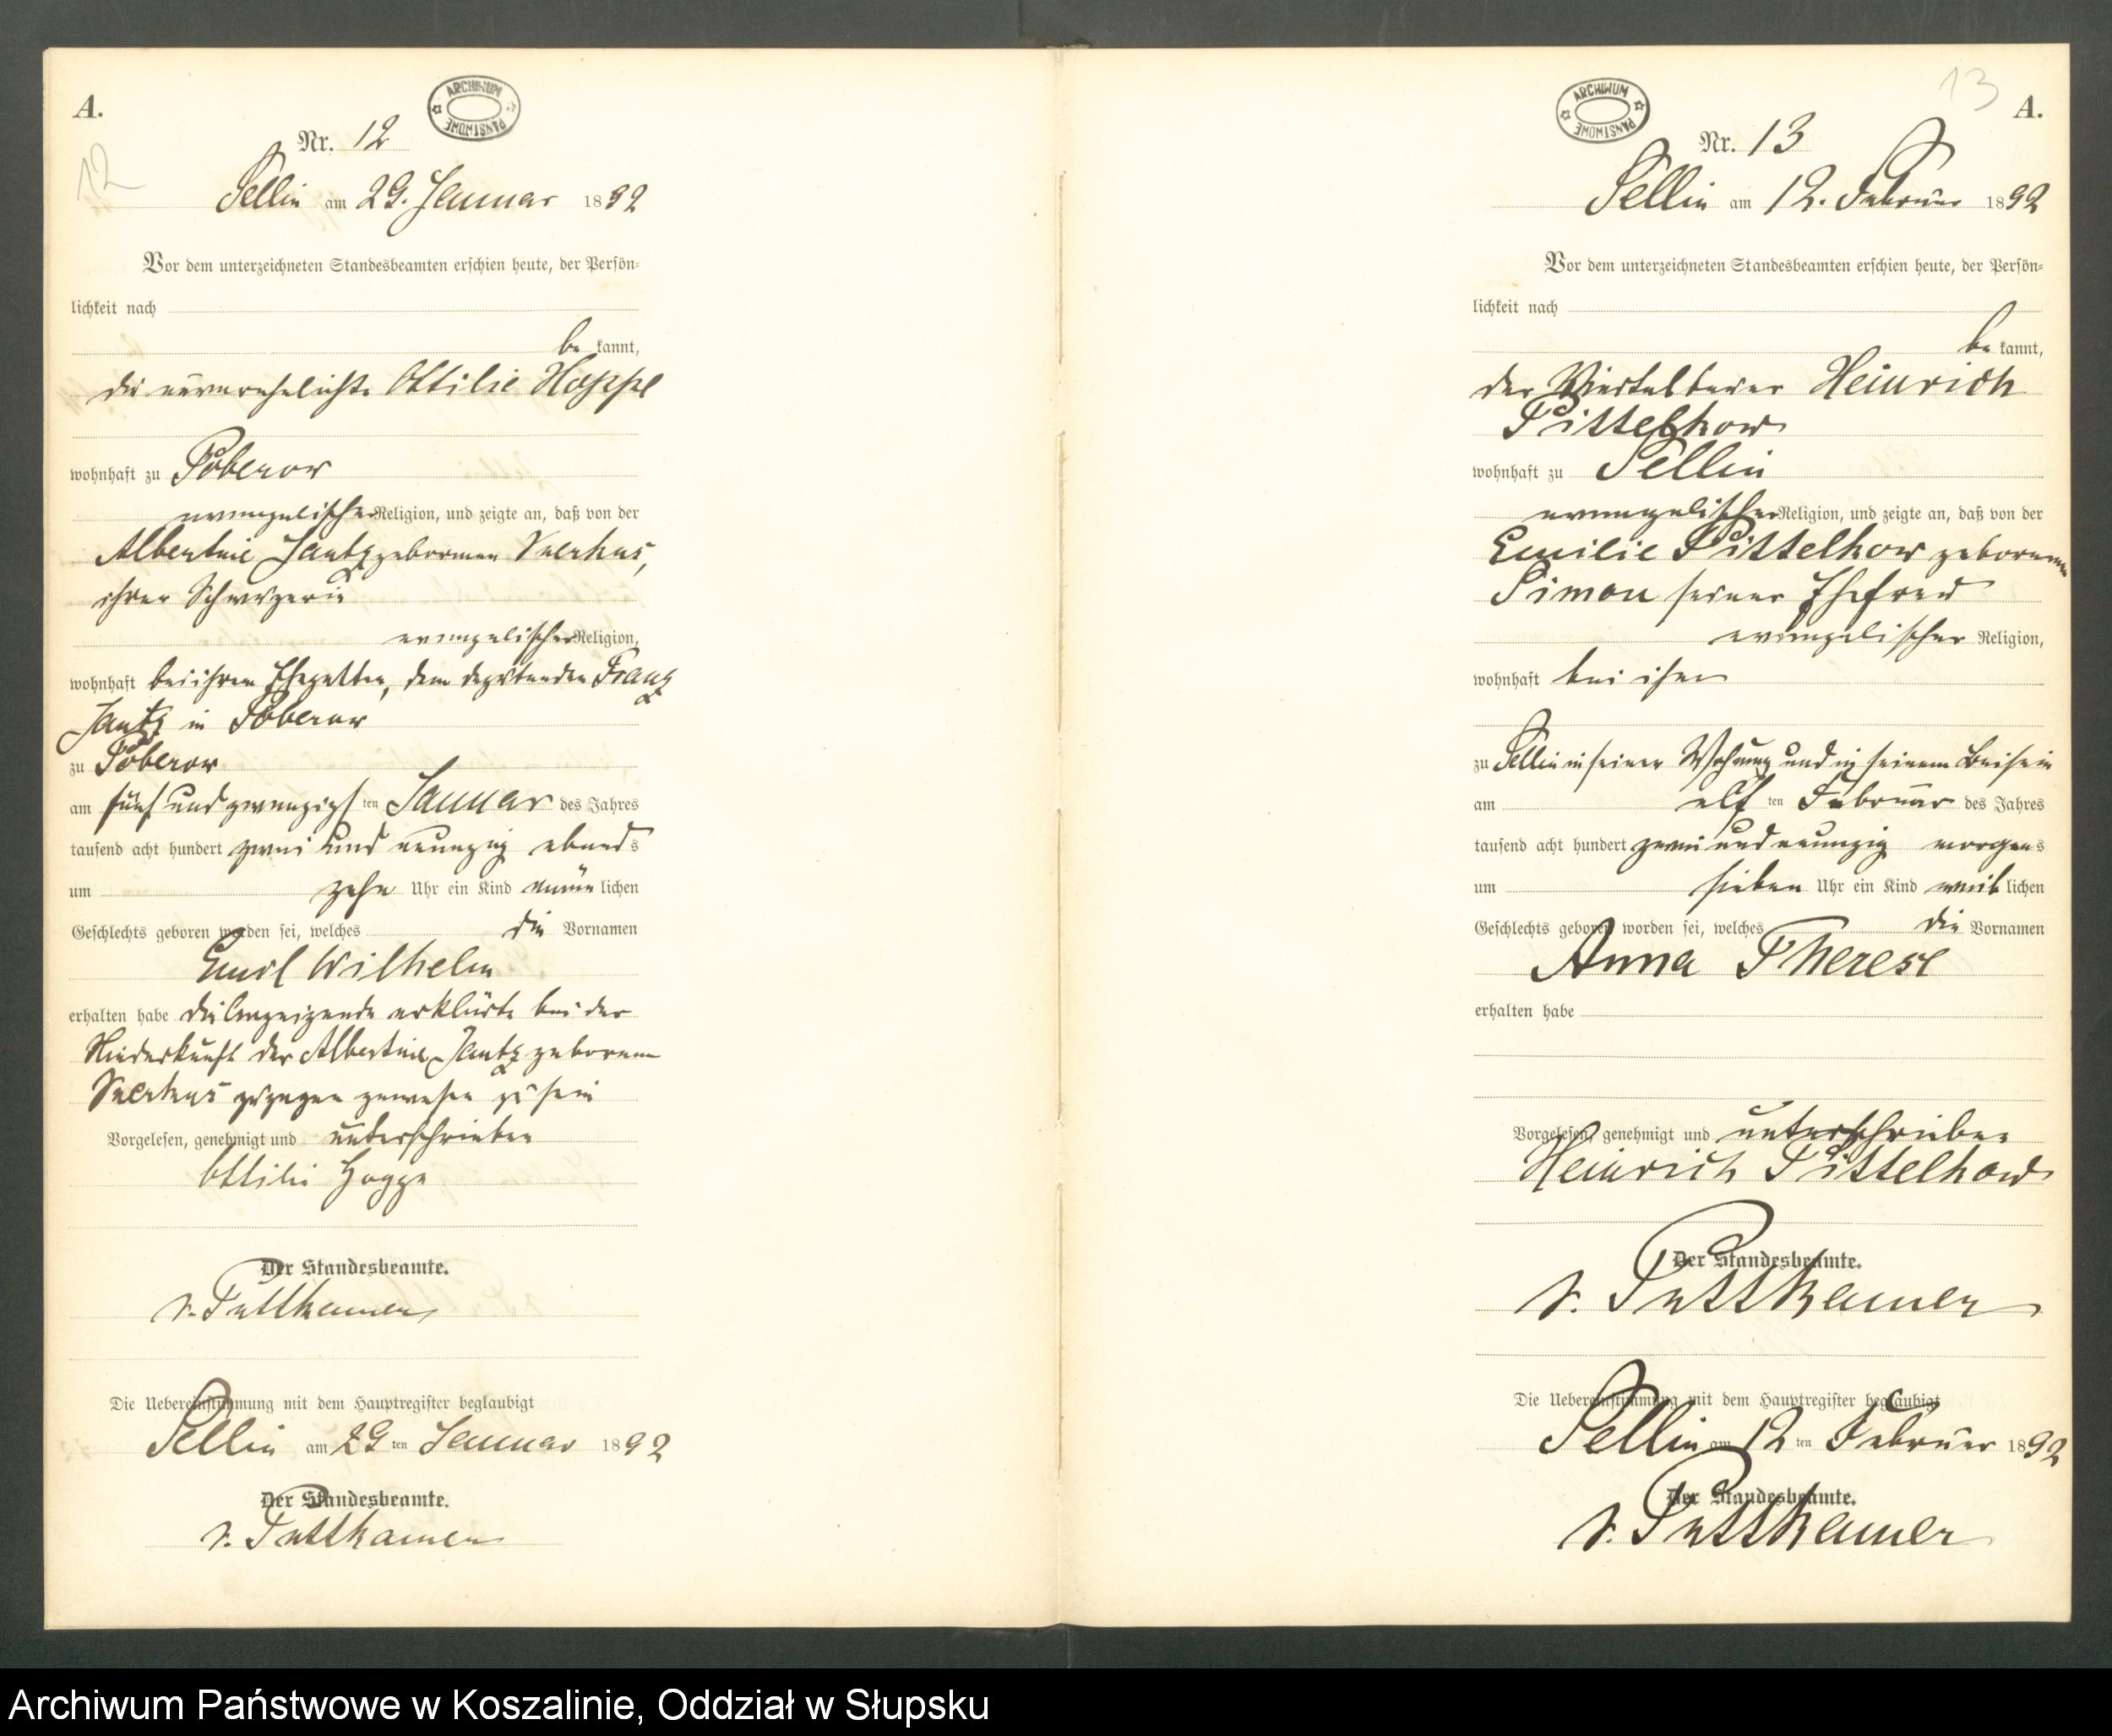 A.
12
ARCHIWUM PAŃSTWOWE
Nr. 12
Sellin am 29. Januar 1892
Vor dem unterzeichneten Standesbeamten erschien heute, der Persön-
lichkeit nach
be kannt,
die unverehelichte Ottilie Hoppe
wohnhaft zu Poberow
evangelischer Religion, und zeigte an, daß von der
Albertine Jantz geborenen
ihrer Schwägerin
evangelischer Religion,
wohnhaft bei ihrem Ehegatten, dem Franz
Jantz in Poberow
zu Poberow
am fünf und zwanzigsten Januar des Jahres
tausend acht hundert zwei und neunzig abends
um zehn Uhr ein Kind männlichen
Geschlechts geboren worden sei, welches die Vornamen
Emil Wilhelm
erhalten habe die Anzeigende erklärte bei der
Niederkunft der Albertine Jantz geborenen
zugegen gewesen zu sein
Vorgelesen, genehmigt und unterschrieben
Ottilie Hoppe
Der Standesbeamte.
v. Puttkamer
Die Uebereinstimmung mit dem Hauptregister beglaubigt
Sellin am 29ten Januar 1892
Der Standesbeamte.
v. Puttkamer
13
A.
ARCHIWUM PAŃSTWOWE
Nr. 13
Sellin am 12. Februar 1892
Vor dem unterzeichneten Standesbeamten erschien heute, der Persön-
lichkeit nach
be kannt,
der Viertelbauer Heinrich
Pittelkow
wohnhaft zu Sellin
evangelischer Religion, und zeigte an, daß von der
Emilie Pittelkow geborenen
Simon seiner Ehefrau
evangelischer Religion,
wohnhaft bei ihm
zu Sellin in seiner Wohnung und in seinem Beisein
am elf ten Februar des Jahres
tausend acht hundert zwei und neunzig morgens
um sieben Uhr ein Kind weiblichen
Geschlechts geboren worden sei, welches die Vornamen
Anna Therese
erhalten habe
Vorgelesen, genehmigt und unterschrieben
Heinrich Pittelkow
Der Standesbeamte.
v. Puttkamer
Die Uebereinstimmung mit dem Hauptregister beglaubigt
Sellin am 12ten Februar 1892
Der Standesbeamte.
v. Puttkamer
Archiwum Państwowe w Koszalinie, Oddział w Słupsku